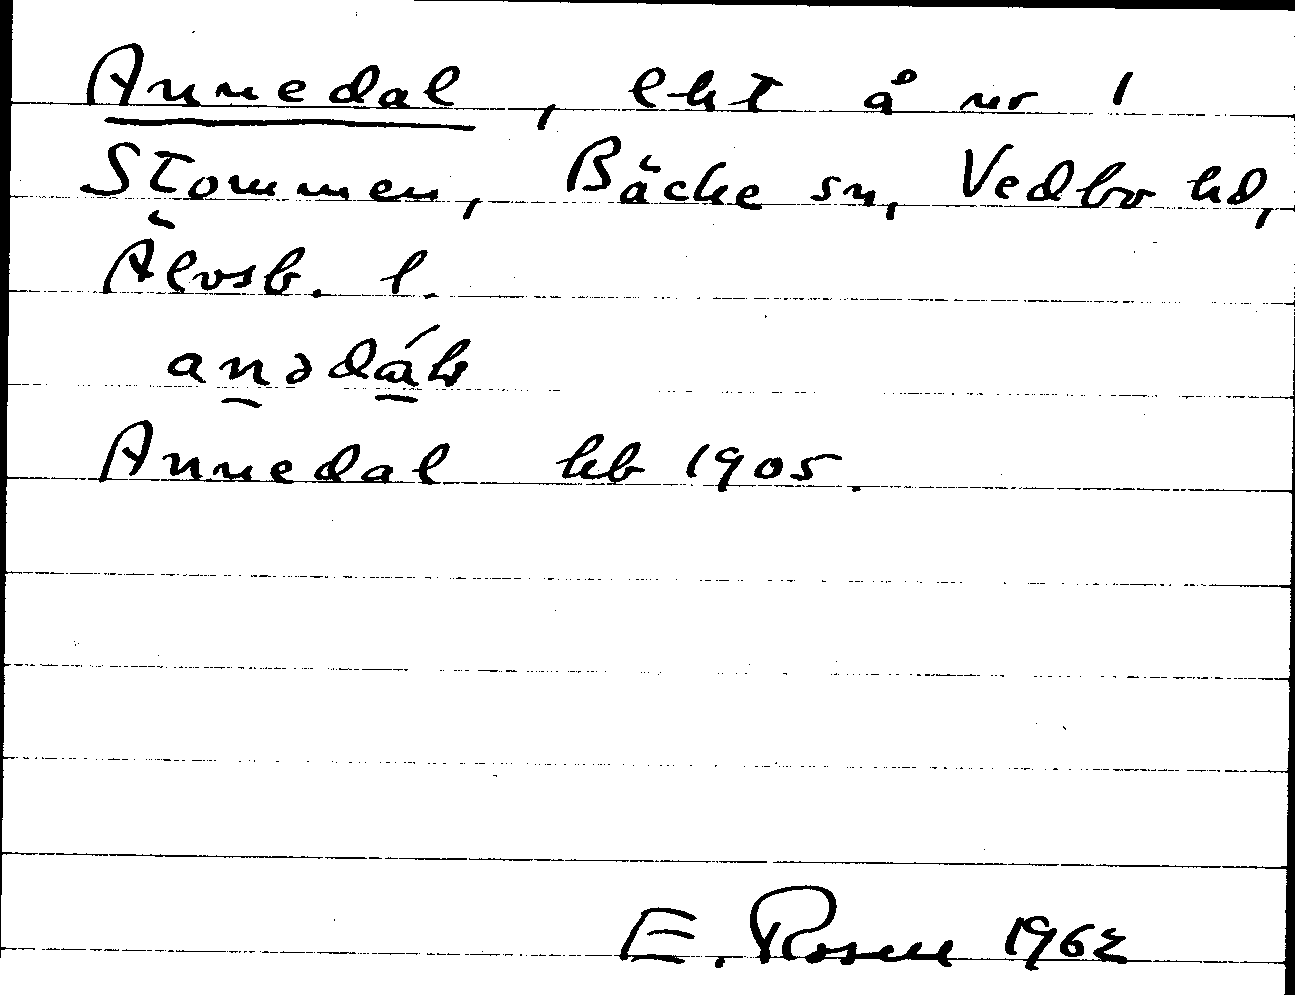 Annedal, lht å nr 1
Stommen, Bäcke sn, Vedbo hd,
Älvsb. l.
Annedal hb 1905.
E. Rosell 1962